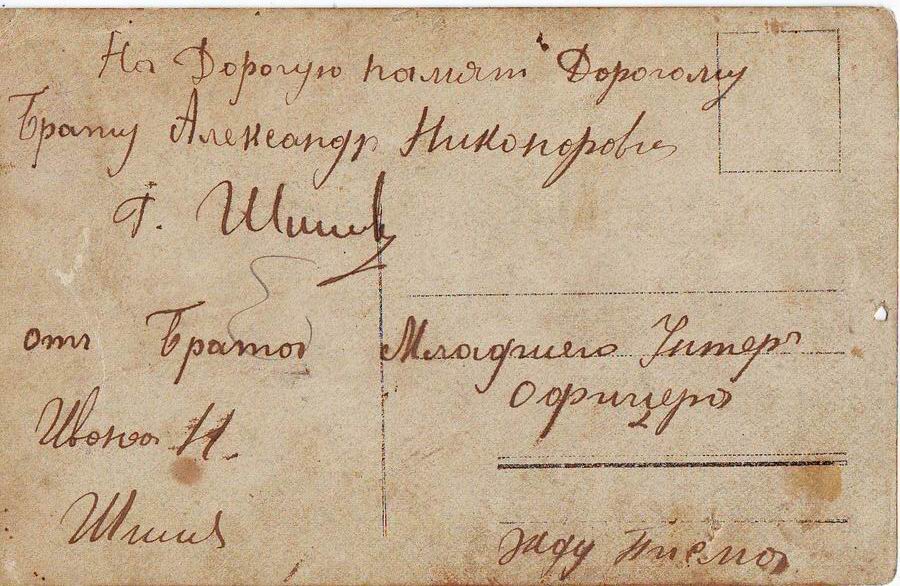 На Дорогую памят Дорогому
Брату Александр Никоноров
Г.
отъ Брата Младшего Унтеръ
Офицера
Ивана Н.
жду писма